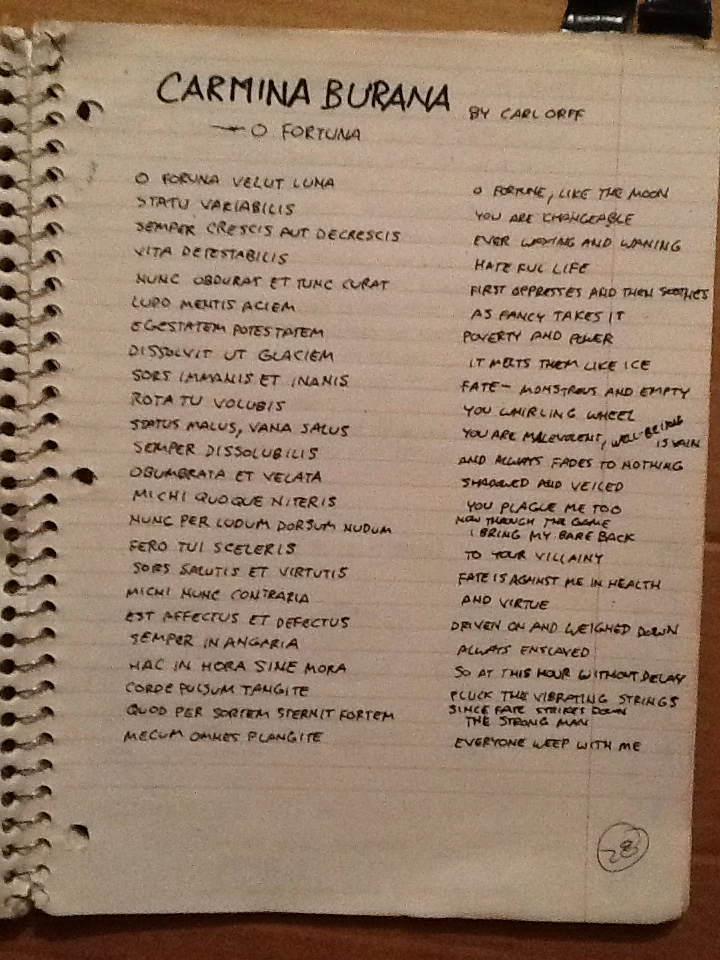 CARMINA BURANA BY CARL ORFF
O FORTUNA
O FORUNA VELUT LUNA
STATU VARIABILIS
SEMPER CRESCIS AUT DECRESCIS
VITA DETESTABILIS
NUNC OBDURAT ET TUNC CURAT
LUDO MENTIS ACIEM
EGESTATEM POTESTATEM
DISSOLVIT UT GLACIEM
SORS IMMANIS ET INANIS
ROTA TU VOLUBIS
STATUS MALUS, VANA SALUS
SEMPER DISSOLUBILIS
OBUMBRATA ET VELATA
MICHI QUOQUE NITERIS
NUNC PER LUDUM DORSUM NUDUM
FERO TUI SCELERIS
SORS SALUTIS ET VIRTUTIS
MICHI NUNC CONTRARIA
EST AFFECTUS ET DEFECTUS
SEMPER IN ANGARIA
HAC IN HORA SINE MORA
CORDE PULSUM TANGITE
QUOD PER SORTEM STERNIT FORTEM
MECUM OMNES PLANGITE
O FORTUNE, LIKE THE MOON
YOU ARE CHANGEABLE
EVER WAXING AND WANING
HATEFUL LIFE
FIRST OPPRESSES AND THEN SOOTHES
AS FANCY TAKES IT
POVERTY AND POWER
IT MELTS THEM LIKE ICE
FATE- MONSTROUS AND EMPTY
YOU WHIRLING WHEEL
YOU ARE MALEVOLENT, WELL-BEING
IS VAIN
AND ALWAYS FADES TO NOTHING
SHADOWED AND VEILED
YOU PLAGUE ME TOO
NOW THROUGH THE GAME
I BRING MY BARE BACK
TO YOUR VILLAINY
FATE IS AGAINST ME IN HEALTH
AND VIRTUE
DRIVEN ON AND WEIGHED DOWN
ALWAYS ENSLAVED
SO AT THIS HOUR WITHOUT DELAY
PLUCK THE VIBRATING STRINGS
SINCE FATE STRIKES DOWN
THE STRONG MAN
EVERYONE WEEP WITH ME
28